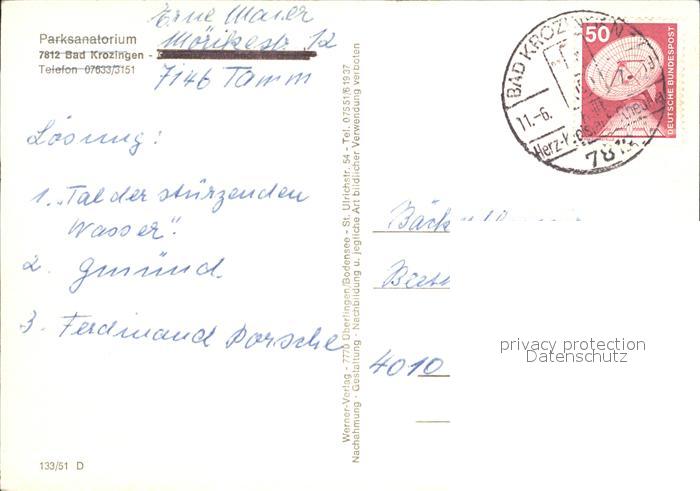 Erne Maier
Parksanatorium
Mörikestr. 12
7812 Bad Krozingen -
Telefon 07633/3151
7146 Tamm
Lösung:
1. „Tal der stürzenden
Wasser".
2. Gmünd
3. Ferdinand Porsche
133/51 D
Werner-Verlag - 7770 Überlingen/Bodensee - St. Ulrichstr. 54 - Tel. 07551/61937
Nachahmung - Gestaltung - Nachbildung u. jegliche Art bildlicher Verwendung verboten
BAD KROZINGEN
11.-6.
Herz-Kreislauf-Rheuma
7812
50
DEUTSCHE BUNDESPOST
4010
privacy protection
Datenschutz